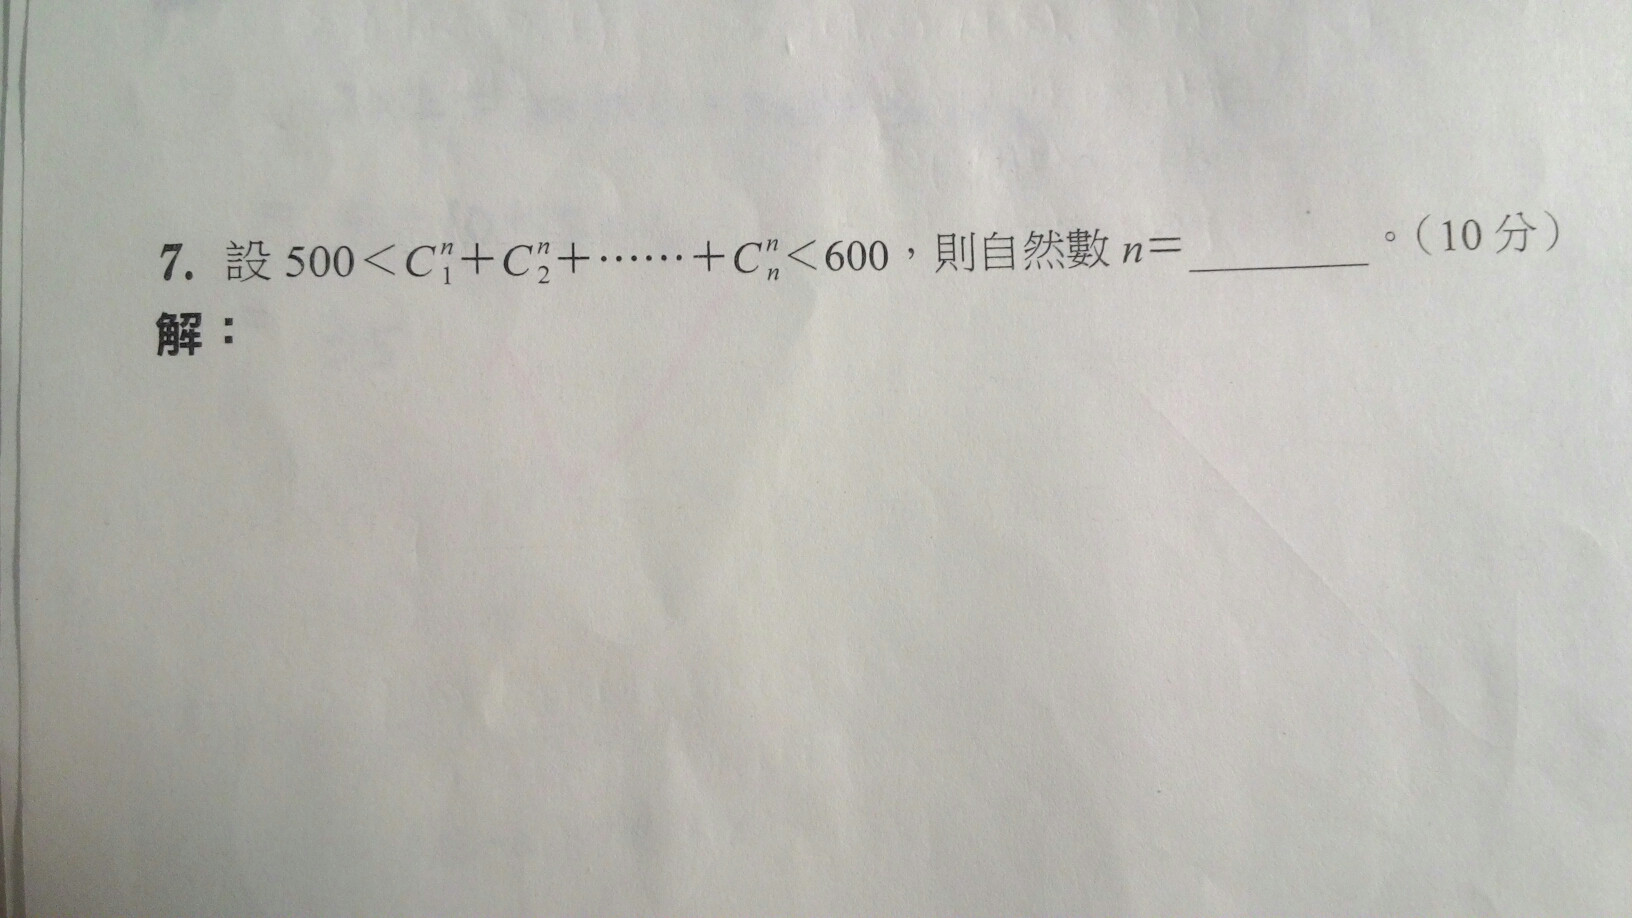 7. 設 500<C₁ⁿ+C₂ⁿ+⋯⋯+Cₙⁿ<600，則自然數 n=________。（10 分）
解：